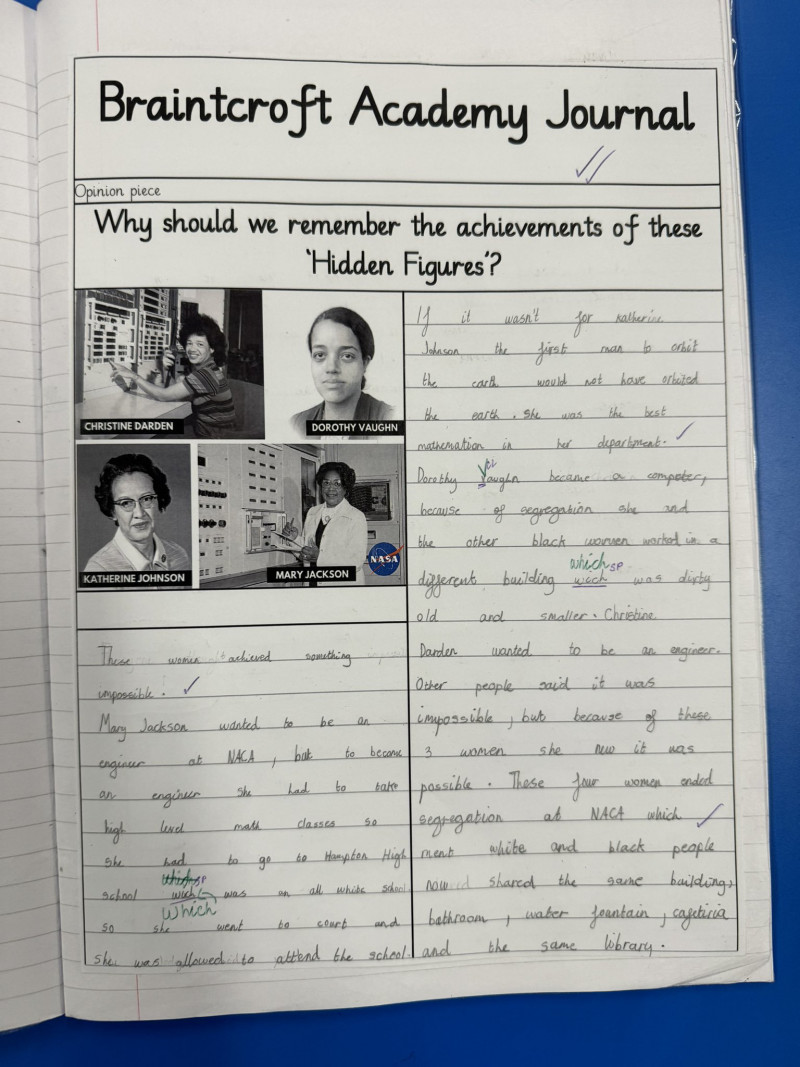 Braintcroft Academy Journal
Opinion piece
Why should we remember the achievements of these
'Hidden Figures'?
CHRISTINE DARDEN
DOROTHY VAUGHN
KATHERINE JOHNSON
MARY JACKSON
NASA
These women achieved something
impossible.
Mary Jackson wanted to be an
enginer at NACA, but to become
an enginer she had to take
high level math classes so
she had to go to Hampton High
which sp
school wich was an all white school
which
so she went to court and
she was allowed to attend the school.
If it wasn't for katherine
Johnson the first man to orbit
the earth would not have orbited
the earth. She was the best
mathemation in her department.
Dorothy Vaughn became a computer,
because of segregation she and
the other black women worked in a
which sp
different building wich was dirty
old and smaller. Christine
Darden wanted to be an engineer.
Other people said it was
impossible, but because of these
3 women she new it was
possible. These four women ended
segregation at NACA which
ment white and black people
now shared the same building,
bathroom, water fountain, cafitiria
and the same library.